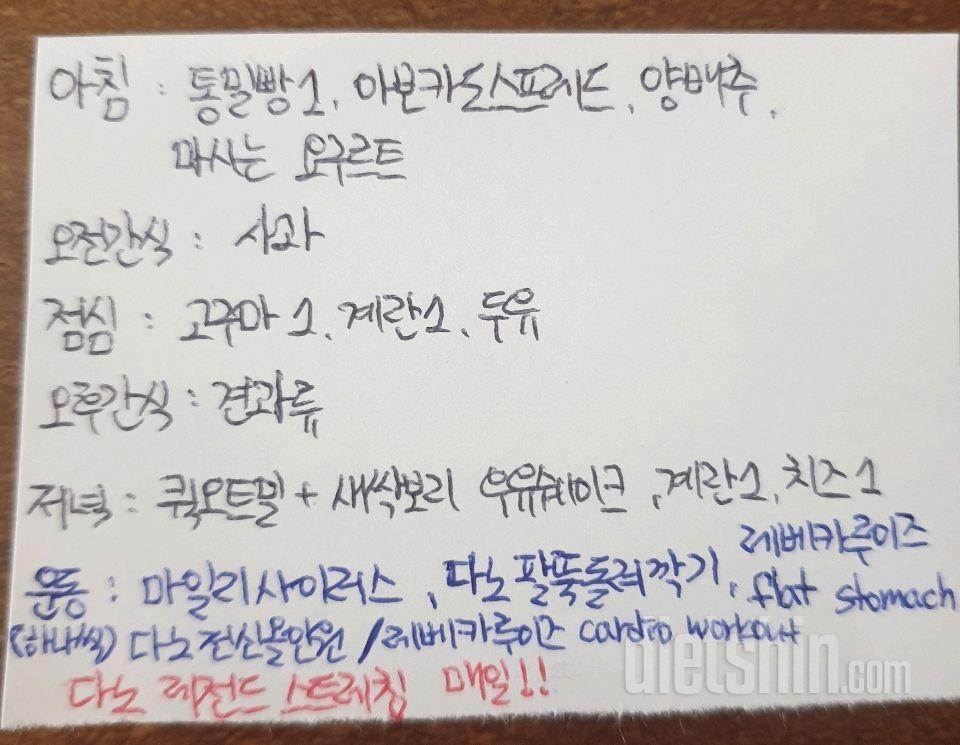 아침 : 통밀빵1, 아보카도스프레드, 양배추,
마시는 요구르트
오전간식 : 사과
점심 : 고구마1, 계란1, 두유
오후간식 : 견과류
저녁 : 퀵오트밀 + 새싹보리 우유쉐이크, 계란1, 치즈1
운동 : 마일리사이러스, 다노 팔뚝돌려깎기, 레베카루이즈 flat stomach
(하나씩) 다노전신올인원 / 레베카루이즈 cardio workout
다노 레전드 스트레칭 매일!!
dietshin.com